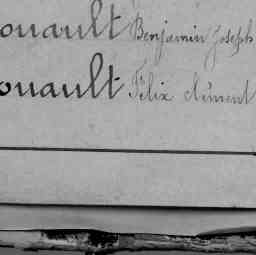 ouault Benjamin Joseph
ouault Félix Clément